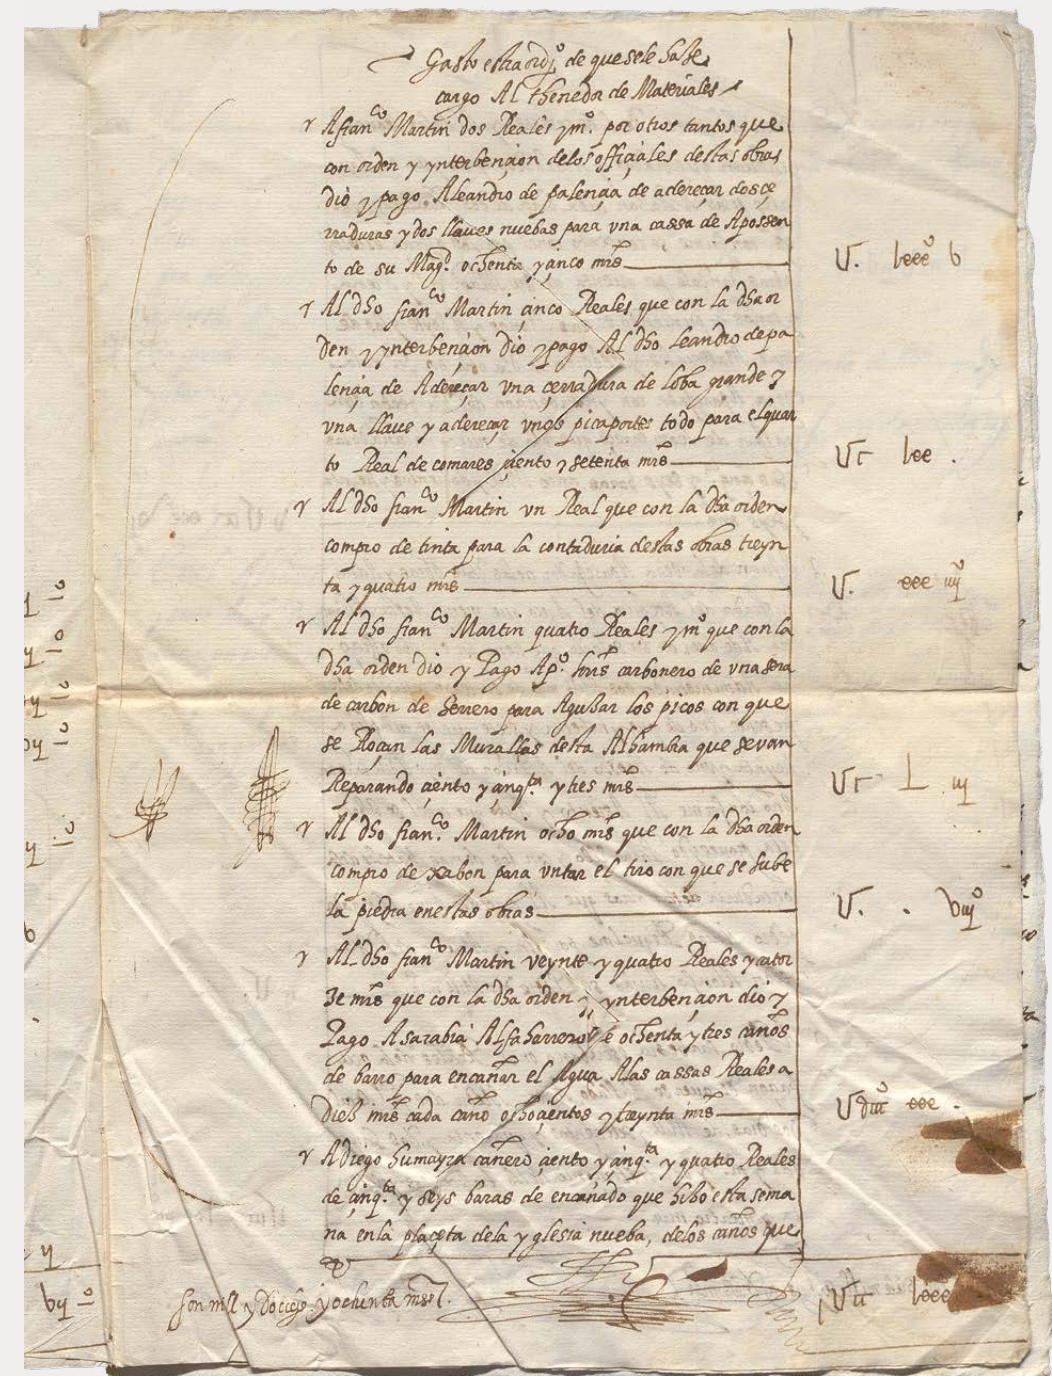 Gasto estraordi.º de que se le haze
cargo Al thenedor de Materiales
A fran.co Martin dos Reales y m.º por otros tantos que
con orden y ynterbençion de los offiçiales destas obras
dio y pago A leandro de palençia de adereçar dos çe
rraduras y dos llaues nuebas para vna cassa de Aposen
to de su Mag.d ochenta y çinco mrs
U. lxxxº b
Al dho fran.co Martin çinco Reales que con la dha or
den y ynterbençion dio y pago Al dho leandro de pa
lençia de Adereçar vna çerradura de loba grande y
vna llaue y adereçar vnos picaportes todo para el quar
to Real de comares çiento y setenta mrs
Uc lxx .
Al dho fran.co Martin vn Real que con la dha orden
compro de tinta para la contaduria destas obras treyn
ta y quatro mrs
U. xxx iiijº
Al dho fran.co Martin quatro Reales y mº que con la
dha orden dio y Pago A p.º hrrs carbonero de vna sera
de carbon de herrero para Aguzar los picos con que
se Roçan las Murallas desta Alhambra que se van
Reparando çiento y çinq.ta y tres mrs
Uc L iij
Al dho fran.co Martin ocho mrs que con la dha orden
compro de xabon para vntar el tiro con que se sube
la piedra en estas obras
U. . biijº
Al dho fran.co Martin veynte y quatro Reales y cator
ze mrs que con la dha orden y ynterbençion dio y
Pago A sarabia Alfaharrero de ochenta y tres caños
de barro para encañar el Agua A las cassas Reales a
diez mrs cada caño ochoçientos y treynta mrs
Udcccº xxx .
A diego humayra cañero çiento y çinq.ta y quatro Reales
de çinq.ta y seys baras de encañado que hizo esta sema
na en la plaçeta de la yglesia nueba, de los caños que
son mill y docientos y ochenta mrs
Ucc lxxx